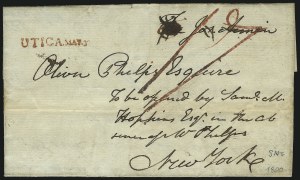 UTICA MAR
Oliver Phelps Esquire
To be opened by Saml. M.
Hopkins Esq. in the ab
sence of Mr Phelps
New York